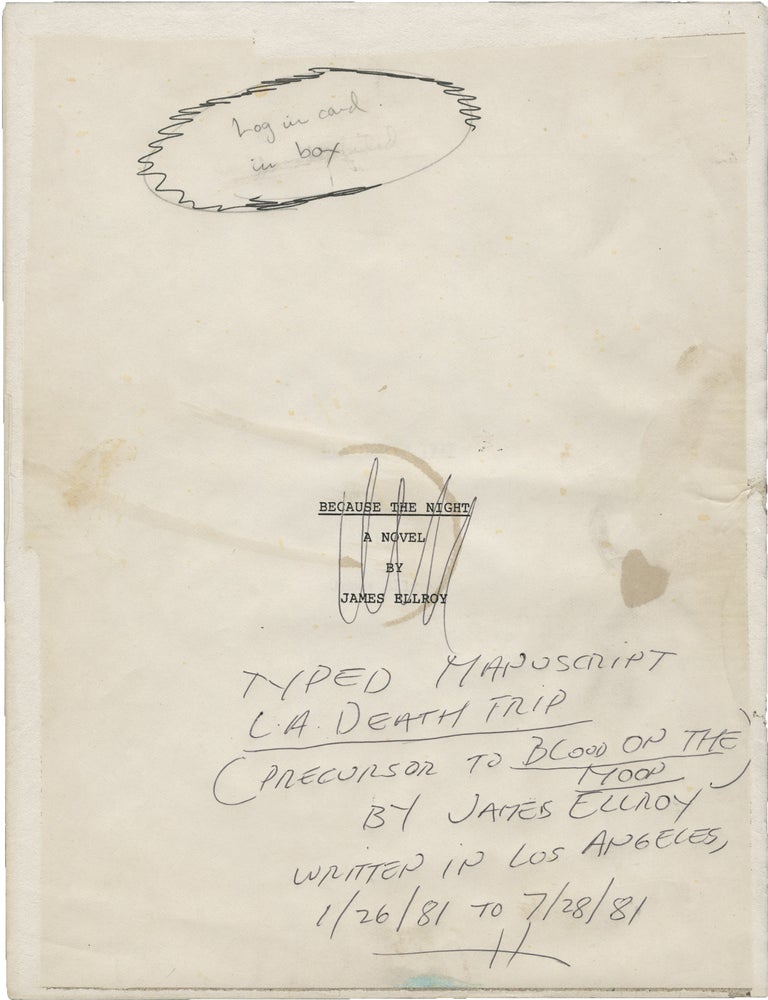 Log in card.
in box
BECAUSE THE NIGHT
A NOVEL
BY
JAMES ELLROY
TYPED MANUSCRIPT
L.A. DEATH TRIP
(PRECURSOR TO BLOOD ON THE
MOON)
BY JAMES ELLROY
WRITTEN IN LOS ANGELES,
1/26/81 TO 7/28/81